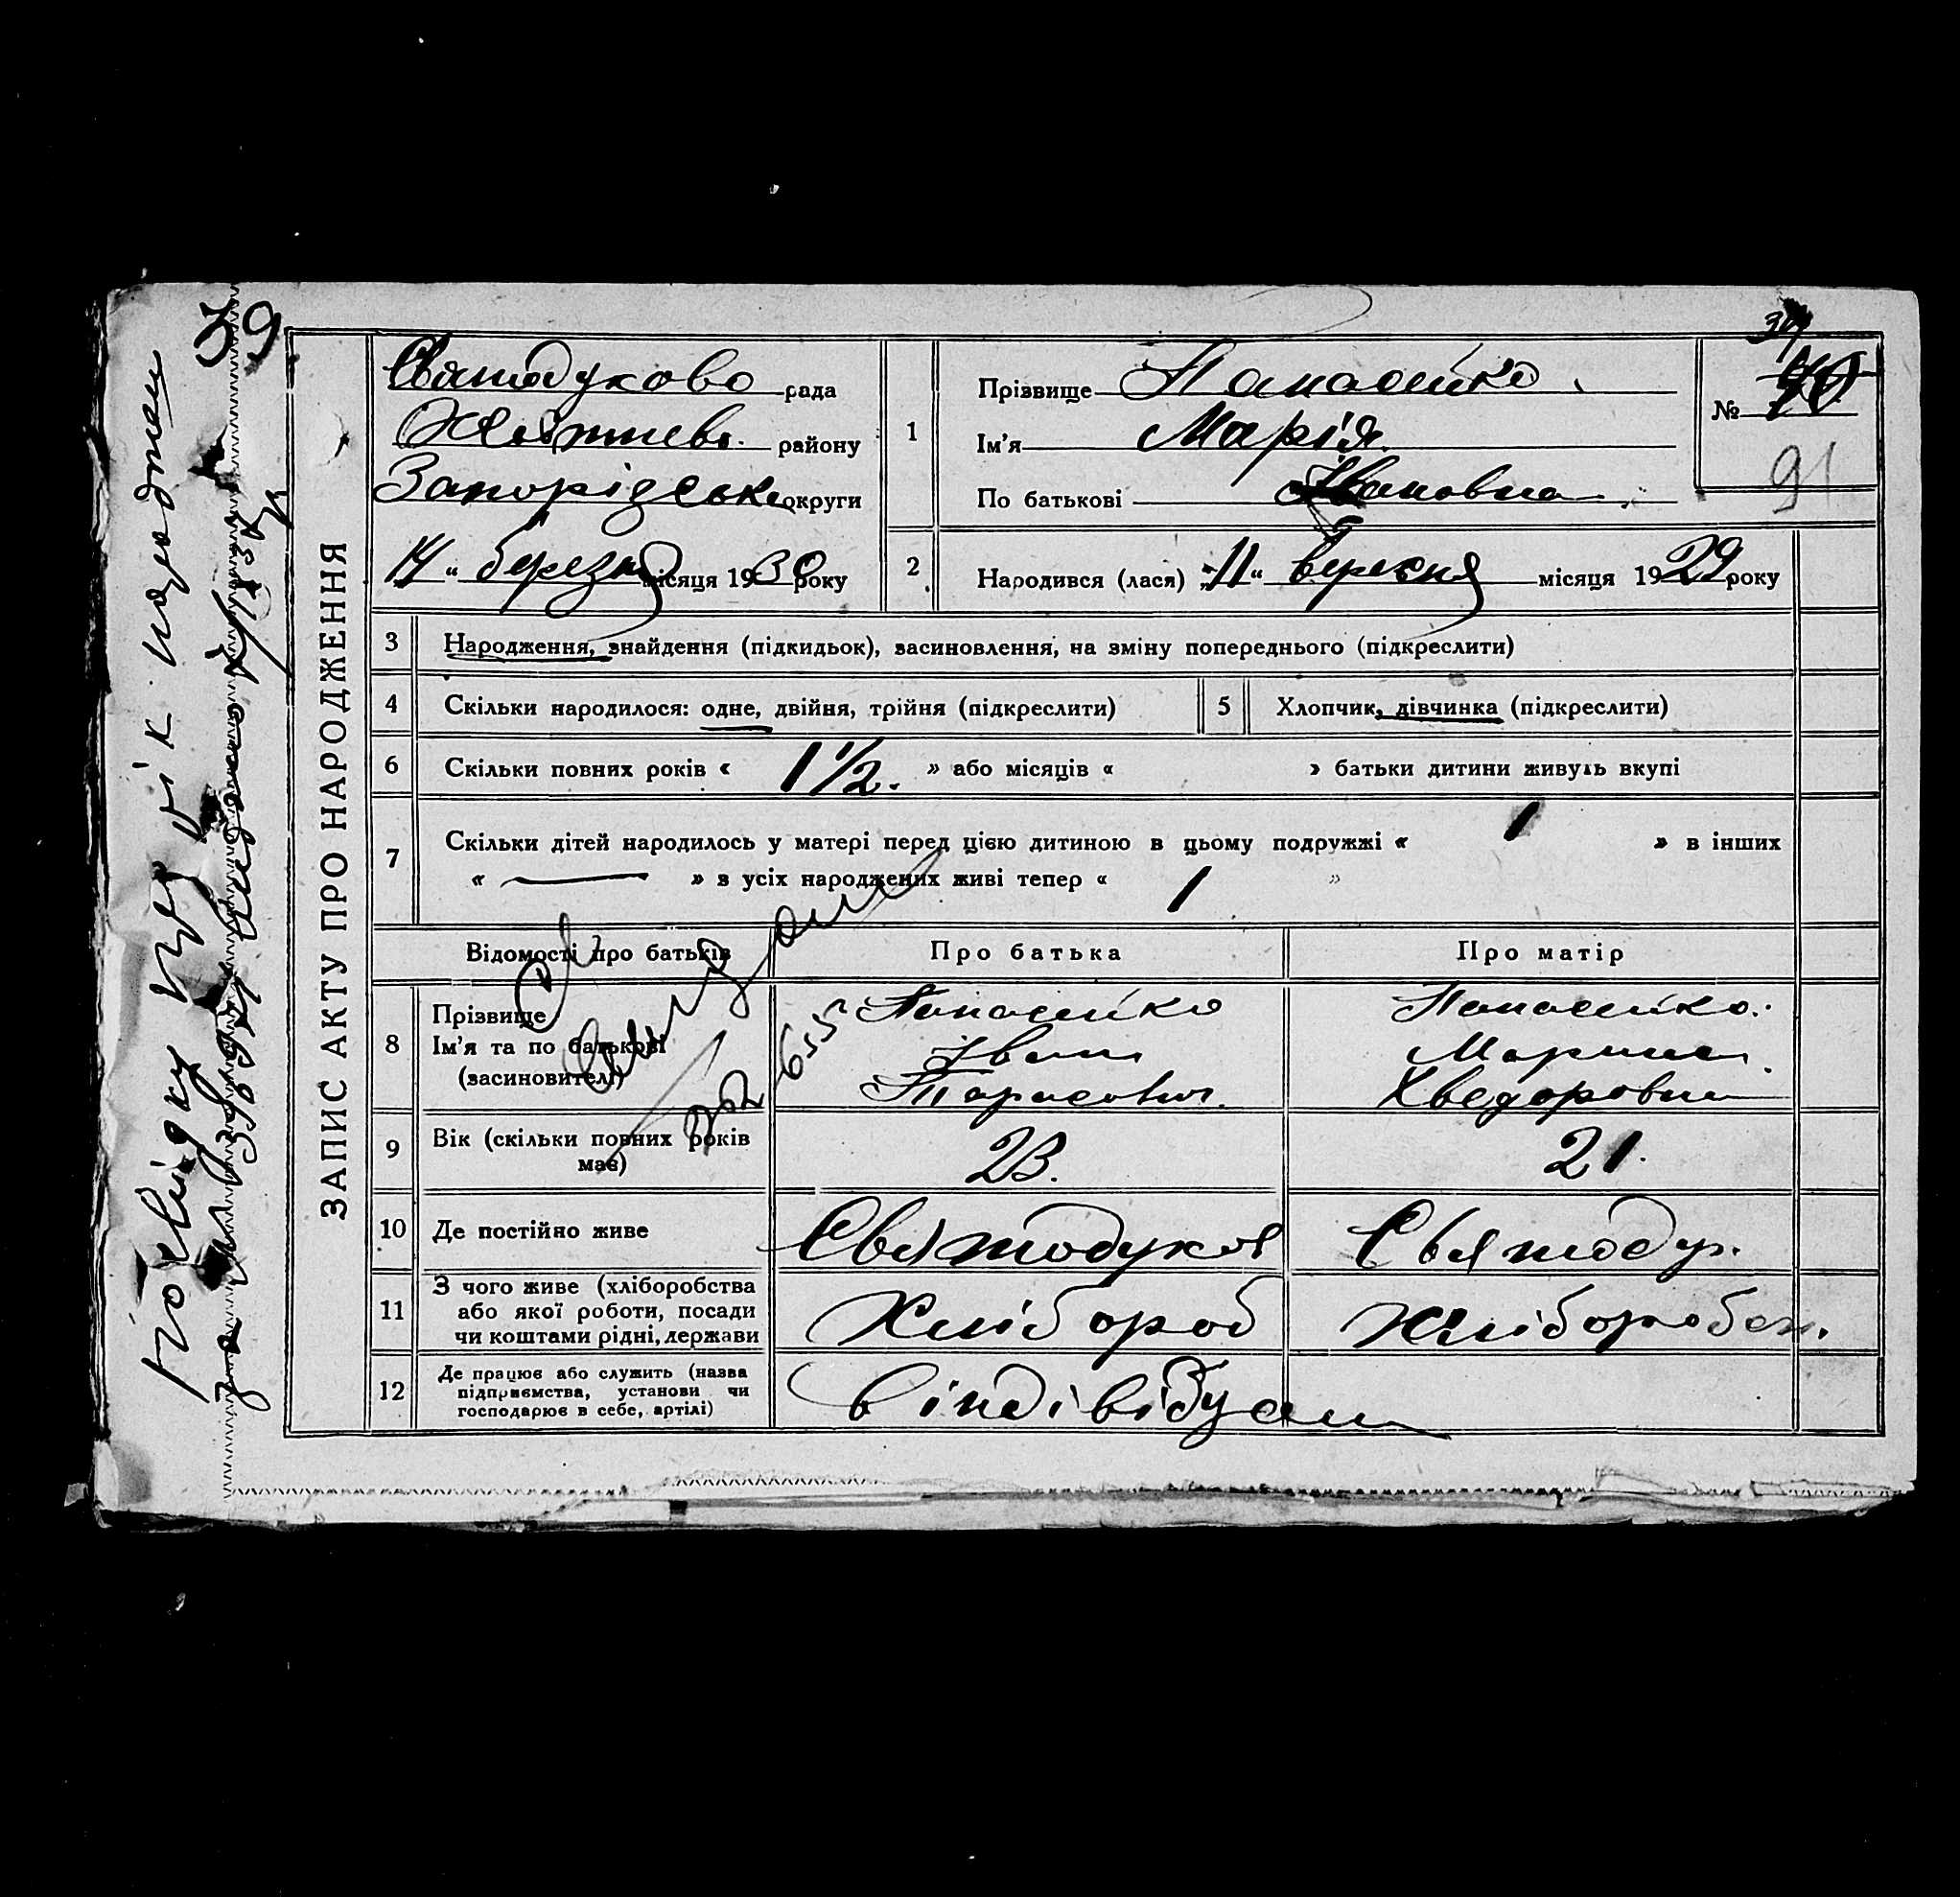 39
ЗАПИС АКТУ ПРО НАРОДЖЕННЯ
Святодухово рада
району
Запорідськ округи
14 " березня місяця 1930 року
1
Прізвище Панасейко
Ім'я Марія
По батькові Івановна
№
39
91
2
Народився (лася) „11" вересня місяця 1929 року
3 Народження, знайдення (підкидьок), засиновлення, на зміну попереднього (підкреслити)
4 Скільки народилося: одне, двійня, трійня (підкреслити)
5 Хлопчик, дівчинка (підкреслити)
6 Скільки повних років « 1 1/2. » або місяців « » батьки дитини живуть вкупі
7 Скільки дітей народилось у матері перед цією дитиною в цьому подружжі « 1 » в інших
« — » з усіх народжених живі тепер « 1 »
Відомості про батьків Про батька Про матір
8 Прізвище Панасейко Панасейко.
Ім'я та по батькові Іван Марина
(засиновителі) Тарасович. Хведоровна
9 Вік (скільки повних років має) 23. 21.
10 Де постійно живе Святодухов Святодух.
11 З чого живе (хліборобства
або якої роботи, посади
чи коштами рідні, держави Хлібороб Хліборобст.
12 Де працює або служить (назва
підприємства, установи чи
господарює в себе, артілі) в індівідуал